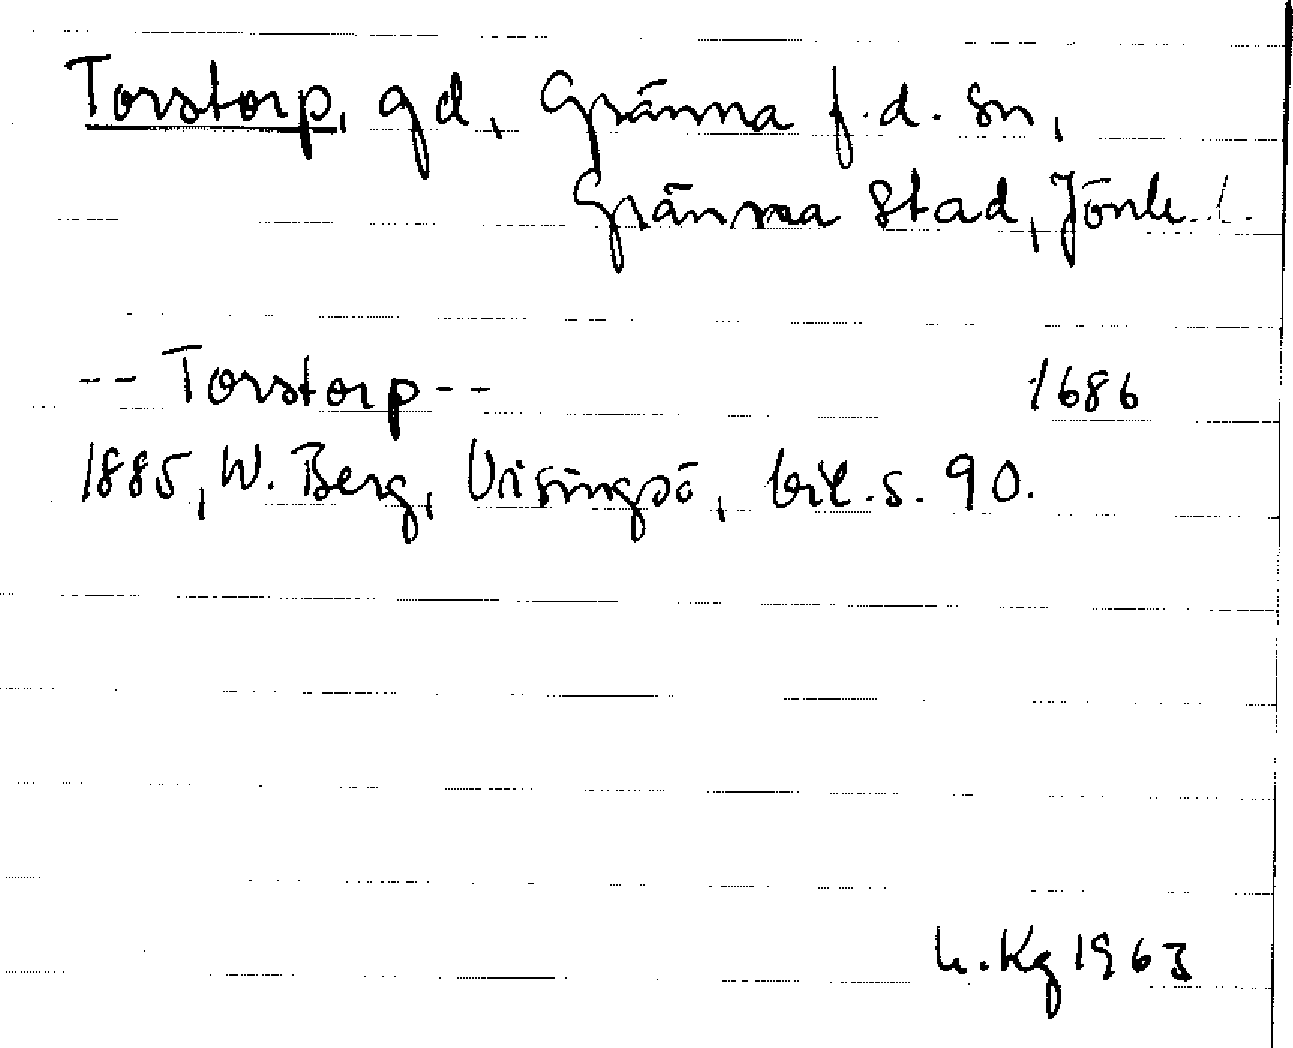 Torstorp, gd, Gränna f.d. sn,
Gränna stad, Jönk. l.
-- Torstorp -- 1686
1885, W. Berg, Visingsö, bil. s. 90.
h. Kg 1963